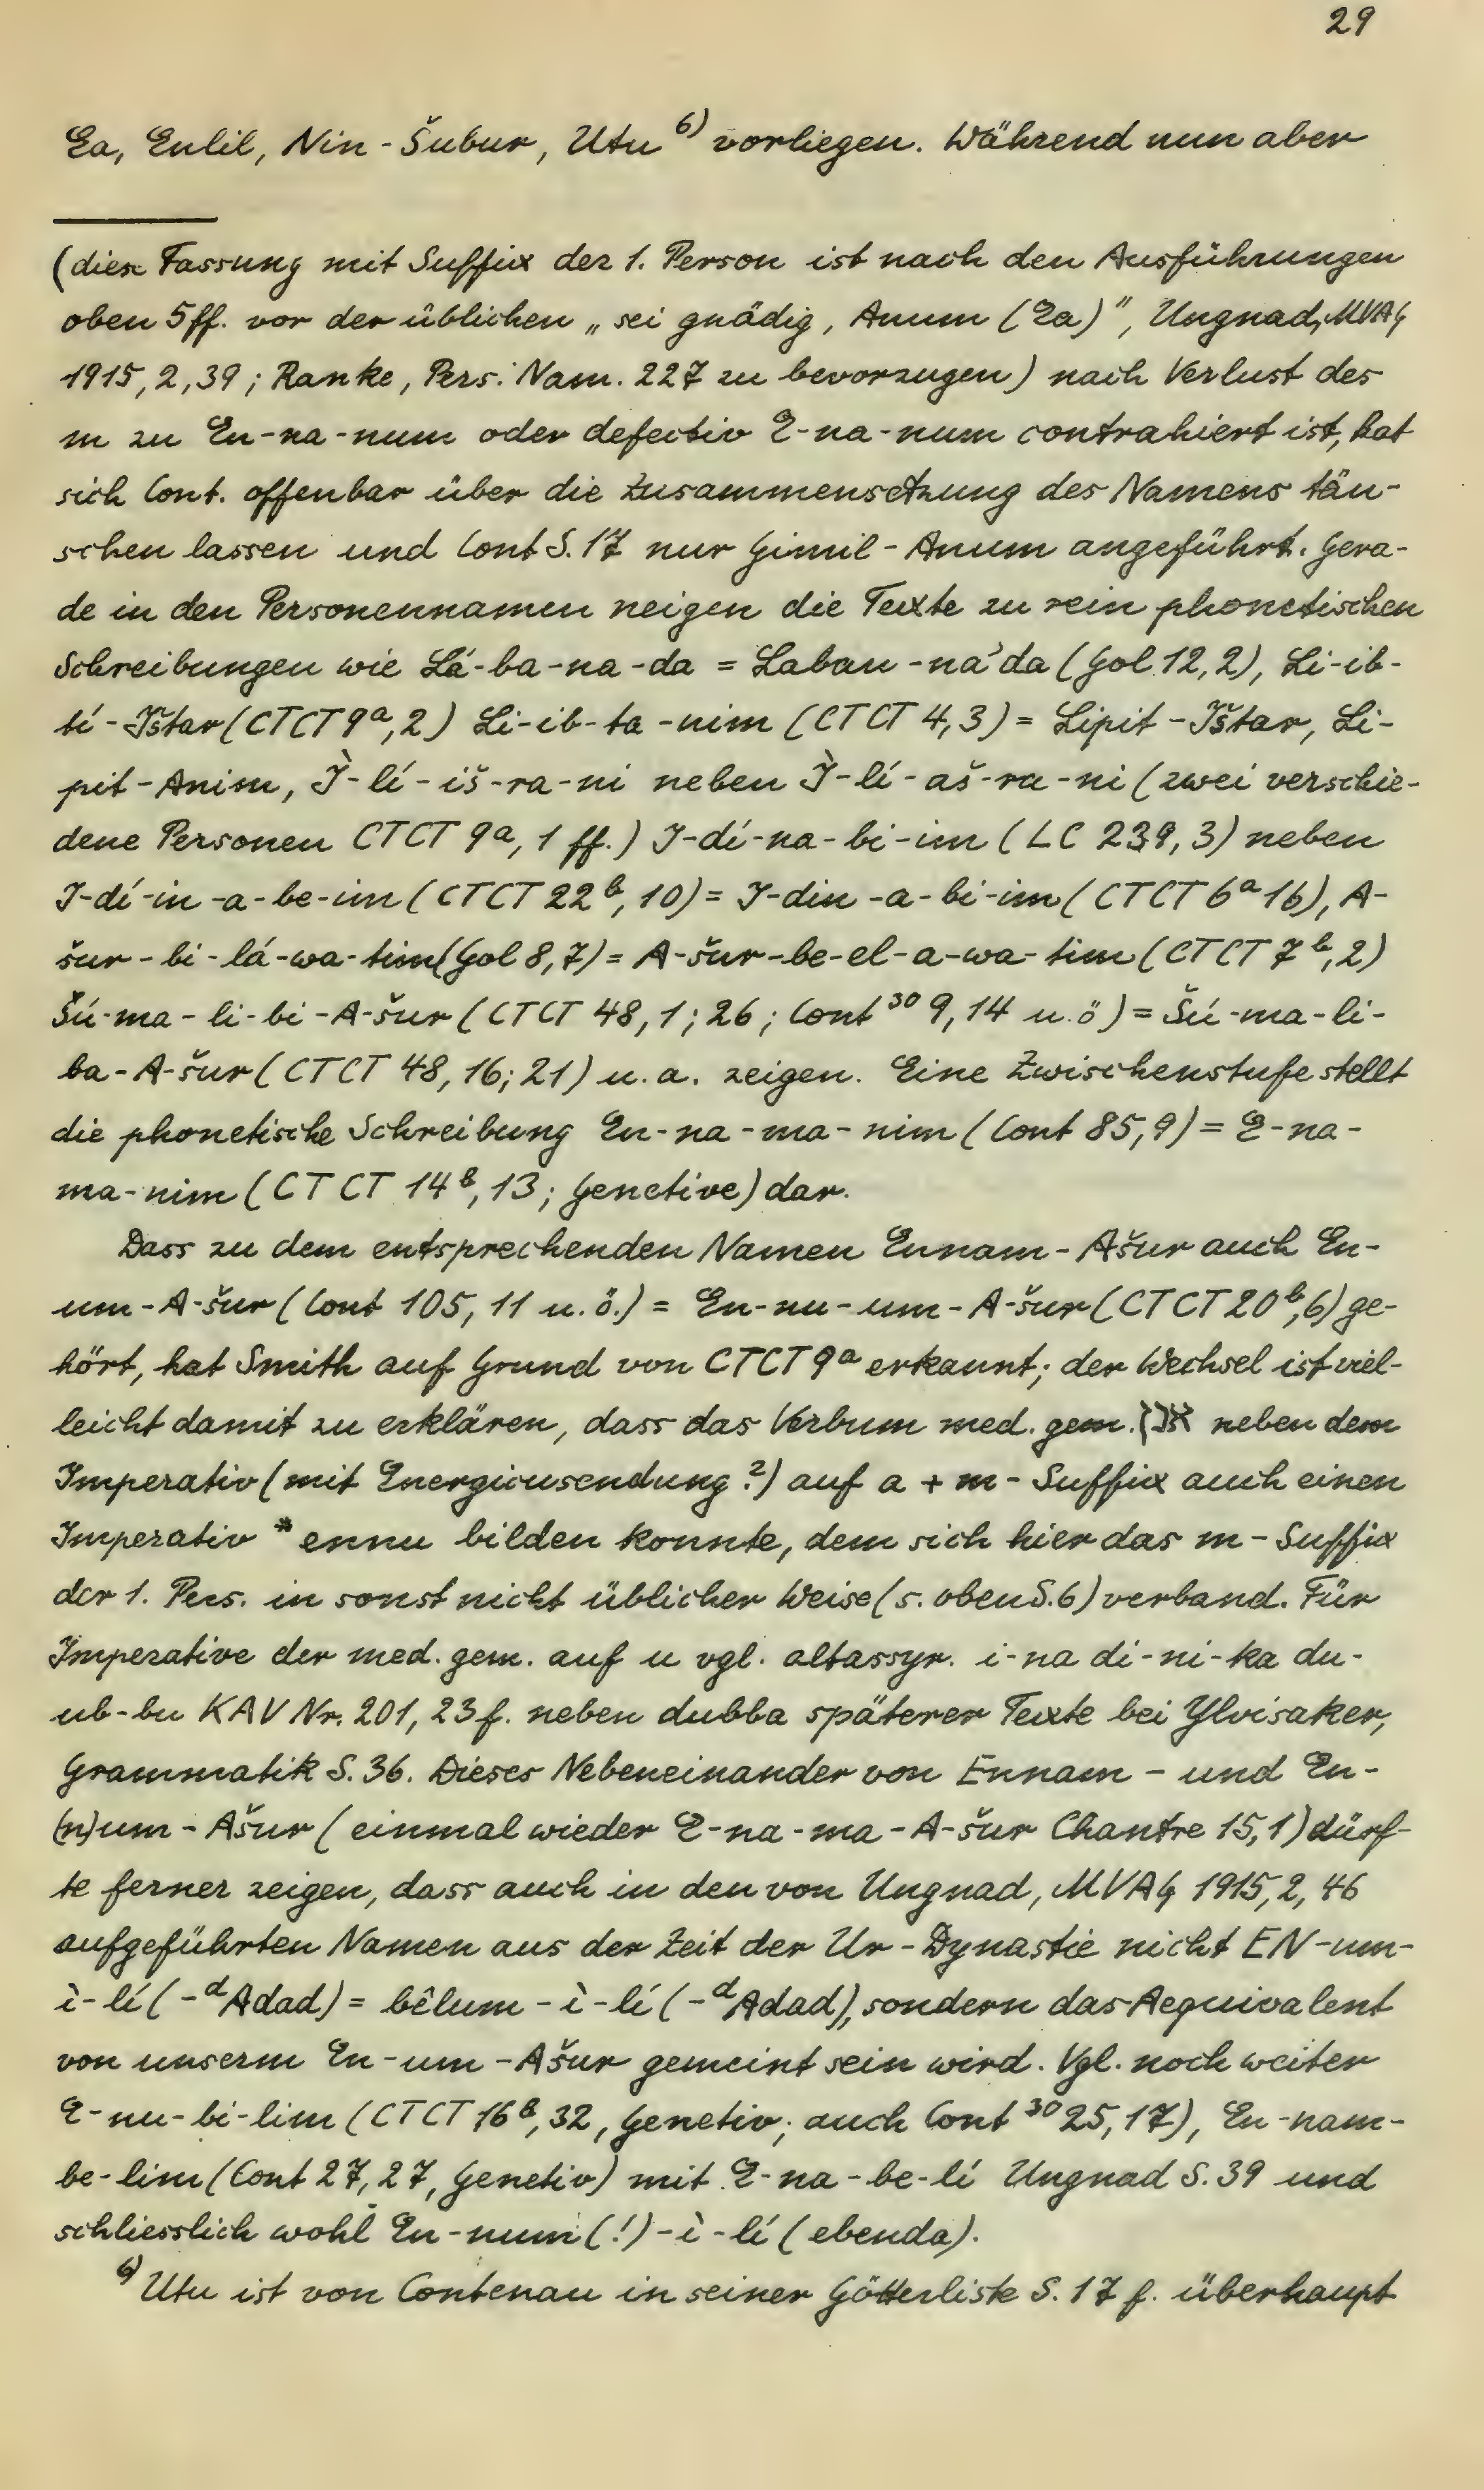 29
Ea, Enlil, Nin-Šubur, Utu⁶⁾ vorliegen. Während nun aber
(diese Fassung mit Suffix der 1. Person ist nach den Ausführungen
oben 5ff. vor der üblichen „sei gnädig, Anum (Ea)", Ungnad, MVAG
1915, 2, 39; Ranke, Pers. Nam. 227 zu bevorzugen) nach Verlust des
m zu En-na-num oder defectiv E-na-num contrahiert ist, hat
sich Cont. offenbar über die Zusammensetzung des Namens täu-
schen lassen und Cont S. 17 nur Gimil-Anum angeführt. Gera-
de in den Personennamen neigen die Texte zu rein phonetischen
Schreibungen wie Lá-ba-na-da = Laban-na'da (Gol 12,2), Li-ib-
tí-Ištar (CTCT 9ᵃ, 2) Li-ib-ta-nim (CTCT 4,3) = Lipit-Ištar, Li-
pit-Anim, Ì-lí-iš-ra-ni neben Ì-lí-aš-ra-ni (zwei verschie-
dene Personen CTCT 9ᵃ, 1 ff.) I-dí-na-bi-im (LC 239, 3) neben
I-dí-in-a-be-im (CTCT 22ᵇ, 10) = I-din-a-bi-im (CTCT 6ᵃ 16), A-
šur-bi-lá-wa-tim (Gol 8,7) = A-šur-be-el-a-wa-tim (CTCT 7ᵇ, 2)
Šú-ma-li-bi-A-šur (CTCT 48, 1; 26; Cont³⁰ 9, 14 u. ö) = Šú-ma-li-
ba-A-šur (CTCT 48, 16; 21) u. a. zeigen. Eine Zwischenstufe stellt
die phonetische Schreibung En-na-ma-nim (Cont 85,9) = E-na-
ma-nim (CTCT 14ᵇ, 13; Genetive) dar.
Dass zu dem entsprechenden Namen Ennam-Ašur auch En-
um-A-šur (Cont 105, 11 u. ö.) = En-nu-um-A-šur (CTCT 20ᵇ, 6) ge-
hört, hat Smith auf Grund von CTCT 9ᵃ erkannt; der Wechsel ist viel-
leicht damit zu erklären, dass das Verbum med. gem. neben dem
Imperativ (mit Energicusendung?) auf a + m-Suffix auch einen
Imperativ *ennu bilden konnte, dem sich hier das m-Suffix
der 1. Pers. in sonst nicht üblicher Weise (s. oben S. 6) verband. Für
Imperative der med. gem. auf u vgl. altassyr. i-na di-ni-ka du-
ub-bu KAV Nr. 201, 23 f. neben dubba späterer Texte bei Ylvisaker,
Grammatik S. 36. Dieses Nebeneinander von Ennam- und En-
(n)um-Ašur (einmal wieder E-na-ma-A-šur Chantre 15, 1) dürf-
te ferner zeigen, dass auch in den von Ungnad, MVAG 1915, 2, 46
aufgeführten Namen aus der Zeit der Ur-Dynastie nicht EN-um-
ì-lí (-ᵈAdad) = bêlum-ì-lí (-ᵈAdad), sondern das Aequivalent
von unserm En-um-Ašur gemeint sein wird. Vgl. noch weiter
E-nu-bi-lim (CTCT 16ᵇ, 32, Genetiv; auch Cont³⁰ 25, 17), En-nam-
be-lim (Cont 27, 27, Genetiv) mit E-na-be-lí Ungnad S. 39 und
schliesslich wohl En-num (!)-ì-lí (ebenda).
⁶⁾ Utu ist von Contenau in seiner Götterliste S. 17 f. überhaupt